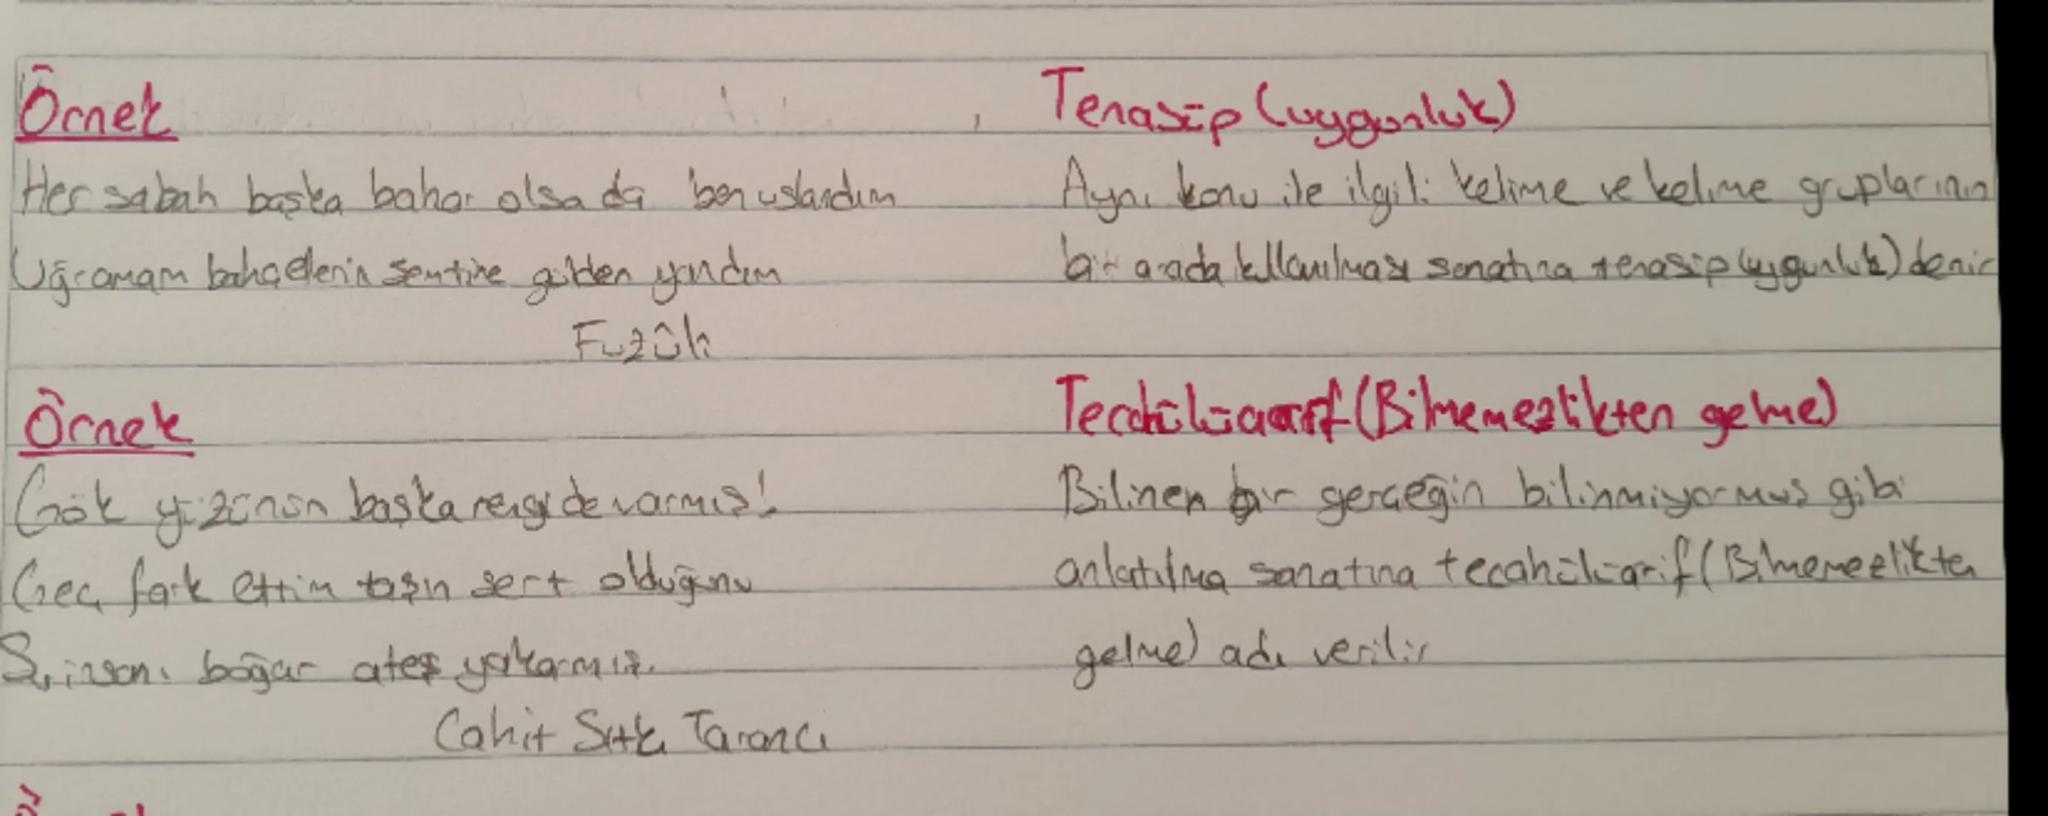 Örnek
Her sabah başka bahar olsa da ben uslandım
Uğramam bahçelerin semtine gülden yandım
Fuzûli
Örnek
Gök yüzünün başka rengi de varmış!
Geç fark ettim taşın sert olduğunu
Su insanı boğar ateş yakarmış.
Cahit Sıtkı Tarancı
Tenasüp (uygunluk)
Aynı konu ile ilgili kelime ve kelime gruplarının
bir arada kullanılması sanatına tenasüp (uygunluk) denir
Tecahül-i arif (Bilmemezlikten gelme)
Bilinen bir gerçeğin bilinmiyormuş gibi
anlatılma sanatına tecahül-i arif (Bilmemezlikten
gelme) adı verilir